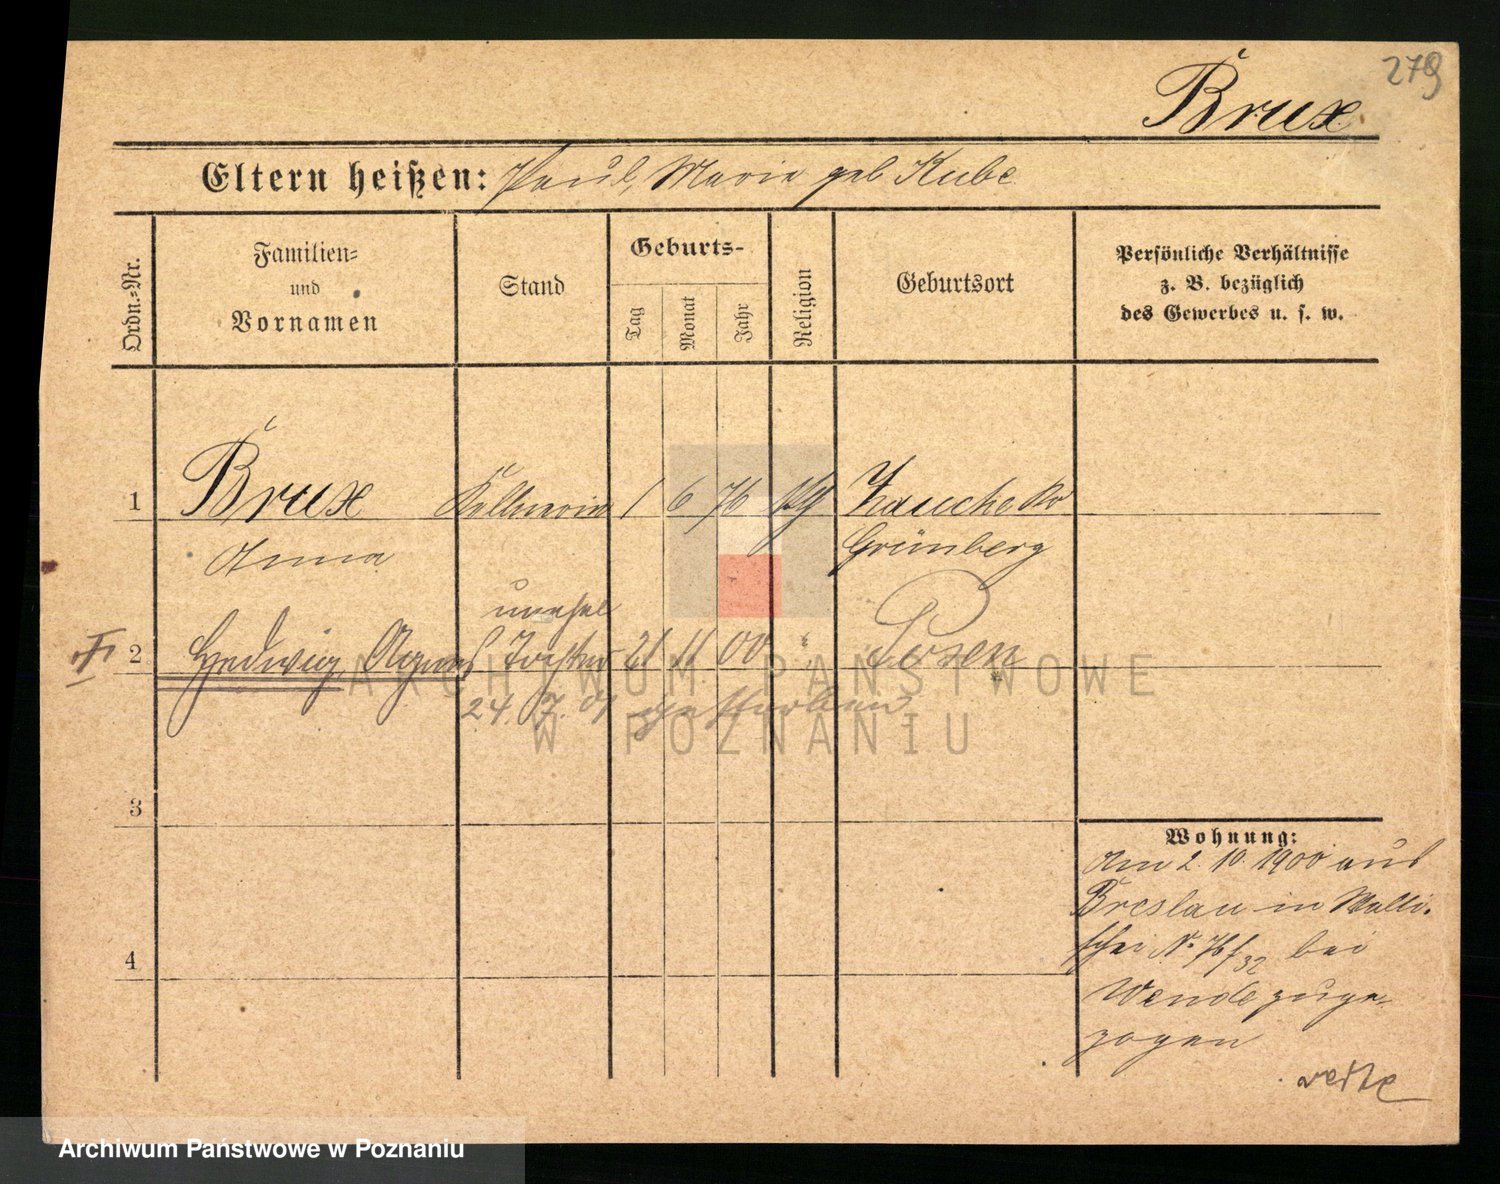 279
Brux.
Eltern heißen: Paul, Marie geb Kube
Ordn.=Nr.
Familien=
und
Vornamen
Stand
Geburts-
Tag
Monat
Jahr
Religion
Geburtsort
Persönliche Verhältnisse
z. B. bezüglich
des Gewerbes u. s. w.
1 Brux Kellnerin 1 6 76 Zauche Kr
Anna Grünberg
unehel
2 Hedwig Agnes Tochter 21 11 00 " Posen
24. 7. 01 gestorben
3
4
Wohnung:
Am 2. 10. 1900 aus
Breslau in Walli-
schei N. 76/32 bei
Wende zuge-
zogen
ARCHIWUM PAŃSTWOWE
W POZNANIU
Archiwum Państwowe w Poznaniu